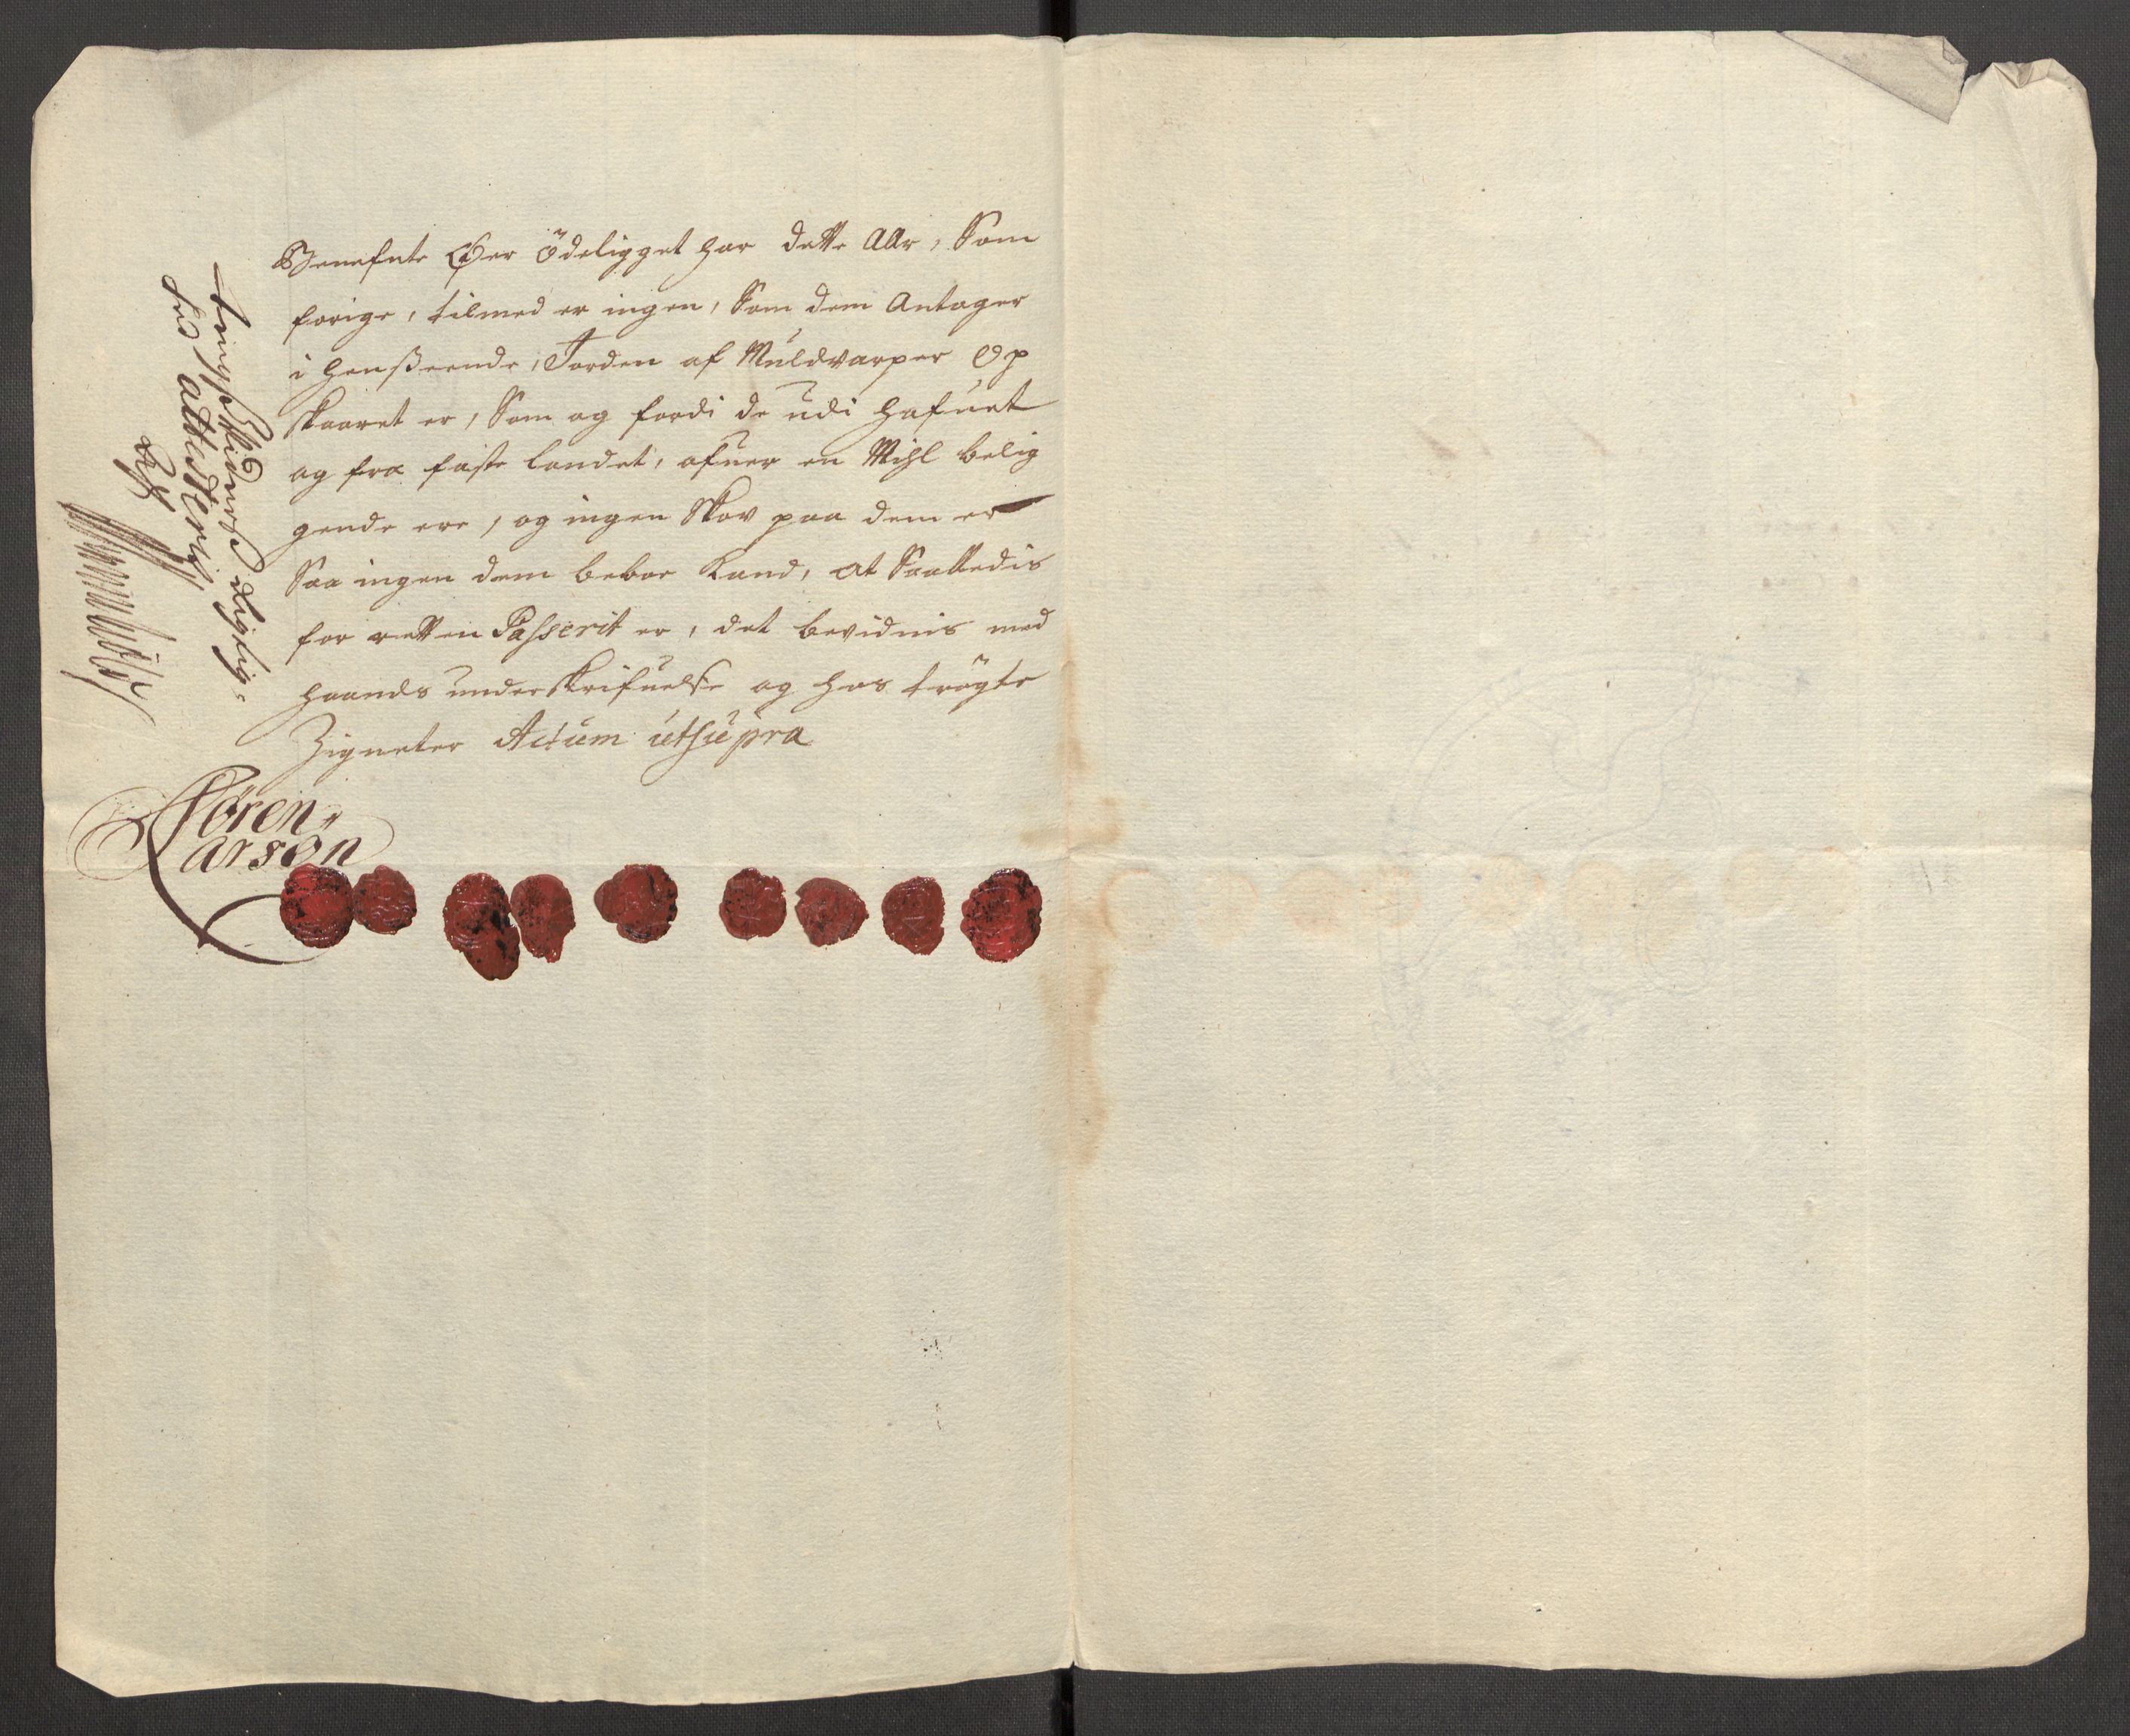 Benefnte Øer ödeligget har dette Aar, Som
forige, tilmed er ingen, Som dem Antager
i henseende, Jorden af Muldvarper Op
skaaret er, Som og fordi de udi hafuet
og fra faste landet, ofuer en Mihl belig
gende ere, og ingen Skov paa dem er
Saa ingen dem beboe kand, at Saalledis
for retten Passerit er, det bevidnis med
haands underskrifuelse og hos trögte
Zigneter Actum utsupra
Sören
Larsøn